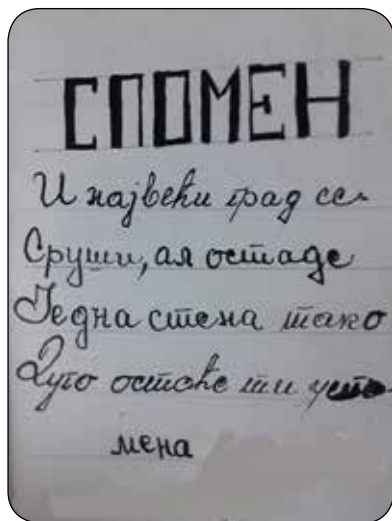 СПОМЕН
И највећи град се
Сруши, ал остаде
Једна стена тако
Дуго остаће ти успо
мена